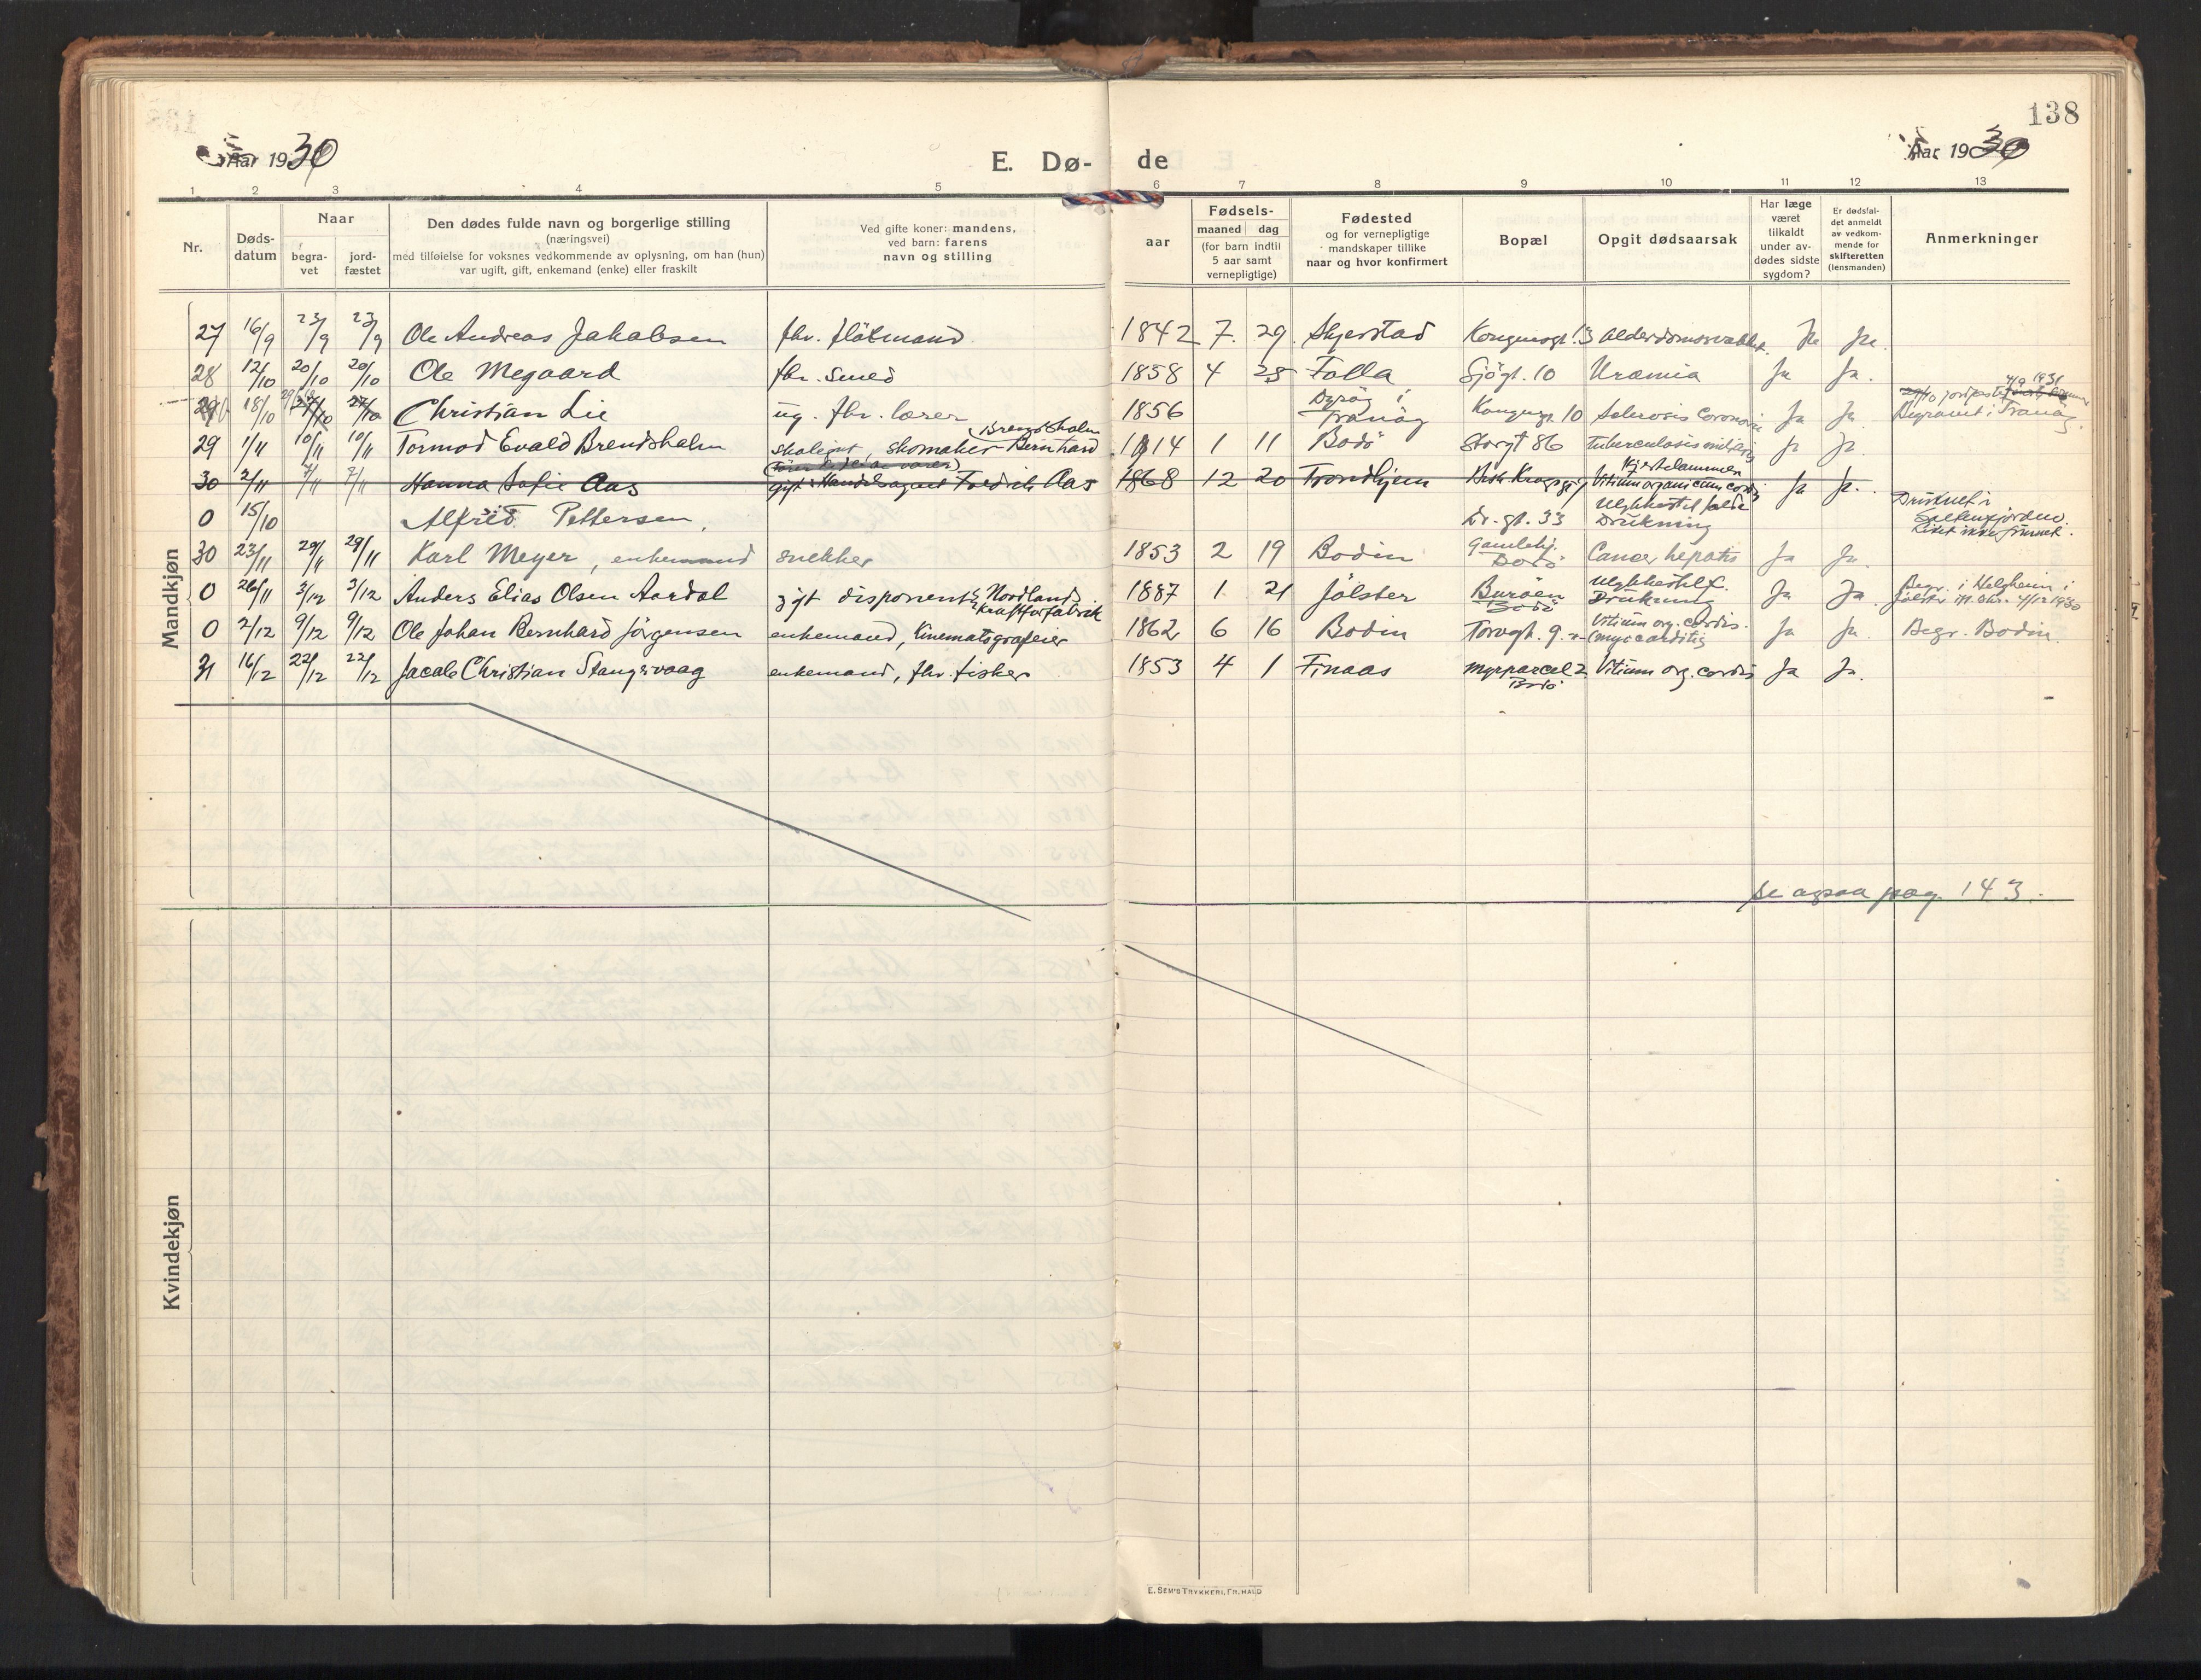 138
Aar 1930
E. Dø-
de
Aar 1930
1 2 3 4 5 6 7 8 9 10 11 12 13
Nr.
Døds-
datum
Naar
begra-
vet
jord-
fæstet
Den dødes fulde navn og borgerlige stilling
(næringsvei)
med tilføielse for voksnes vedkommende av oplysning, om han (hun)
var ugift, gift, enkemand (enke) eller fraskilt
Ved gifte koner: mandens,
ved barn: farens
navn og stilling
aar
Fødsels-
maaned dag
(for barn indtil
5 aar samt
vernepligtige)
Fødested
og for vernepligtige
mandskaper tillike
naar og hvor konfirmert
Bopæl
Opgit dødsaarsak
Har læge
været
tilkaldt
under av-
dødes sidste
sygdom?
Er dødsfal-
det anmeldt
av vedkom-
mende for
skifteretten
(lensmanden)
Anmerkninger
Mandkjøn
27 16/9 23/9 23/9 Ole Andreas Jakobsen fhv. flötmand 1842 7. 29. Skjerstad Kongensgt. 13 Alderdomssvakhet. Ja Ja.
28 12/10 20/10 20/10 Ole Megaard fhv. smed 1858 4 25 Folla Sjögt. 10 Uræmia Ja Ja.
18/10 27/10 Christian Lie ug. fhv. lærer 1856 Dyröy i Tranöy Kongensgt. 10 Sclerosis Ja Ja. Begravet i Tranöy.
29 1/11 10/11 10/11 Tormod Evald Brendsholm skolegut, skomaker Bernhard Brendsholm 1914 1 11 Bodö Storgt 86 tuberculosis miliaris Ja Ja.
30 2/11 7/11 7/11 Hanna Sofie Aas gift m Handelsagent Fredrik Aas 1868 12 20 Trondhjem Hjertelammen Vitium organicum cordis Ja Ja.
0 15/10 Alfred Pettersen, Dr. gt. 33 Ulykkestilfælde Drukning Druknet i Saltenfjorden. Liket ikke funnet.
30 23/11 29/11 29/11 Karl Meyer, enkemand snekker 1853 2 19 Bodin Gamlehj. Bodö Cancer hepatis Ja Ja.
0 26/11 3/12 3/12 Anders Elias Olsen Aardal gift disponent i Nordlands Kraftforfabrik 1887 1 21 Jølster Burøen Bodö Ulykkestilf. Drukning Ja Ja Begr. i Helgheim i Jølster 4/12 1930
0 2/12 9/12 9/12 Ole Johan Bernhard Jörgensen enkemand, Kinematografeier 1862 6 16 Bodin Torvgt. 9. Vitium org. cordis. (myocarditis Ja Ja Begr. Bodin.
31 16/12 22/12 22/12 Jacob Christian Stangervaag enkemand, fhv. fisker 1853 4 1 Finaas Myrparcel 2 Bodö Vitium org. cordis Ja Ja.
Se ogsaa pag. 143.
Kvindekjøn
E. SEM'S TRYKKERI, FR.HALD